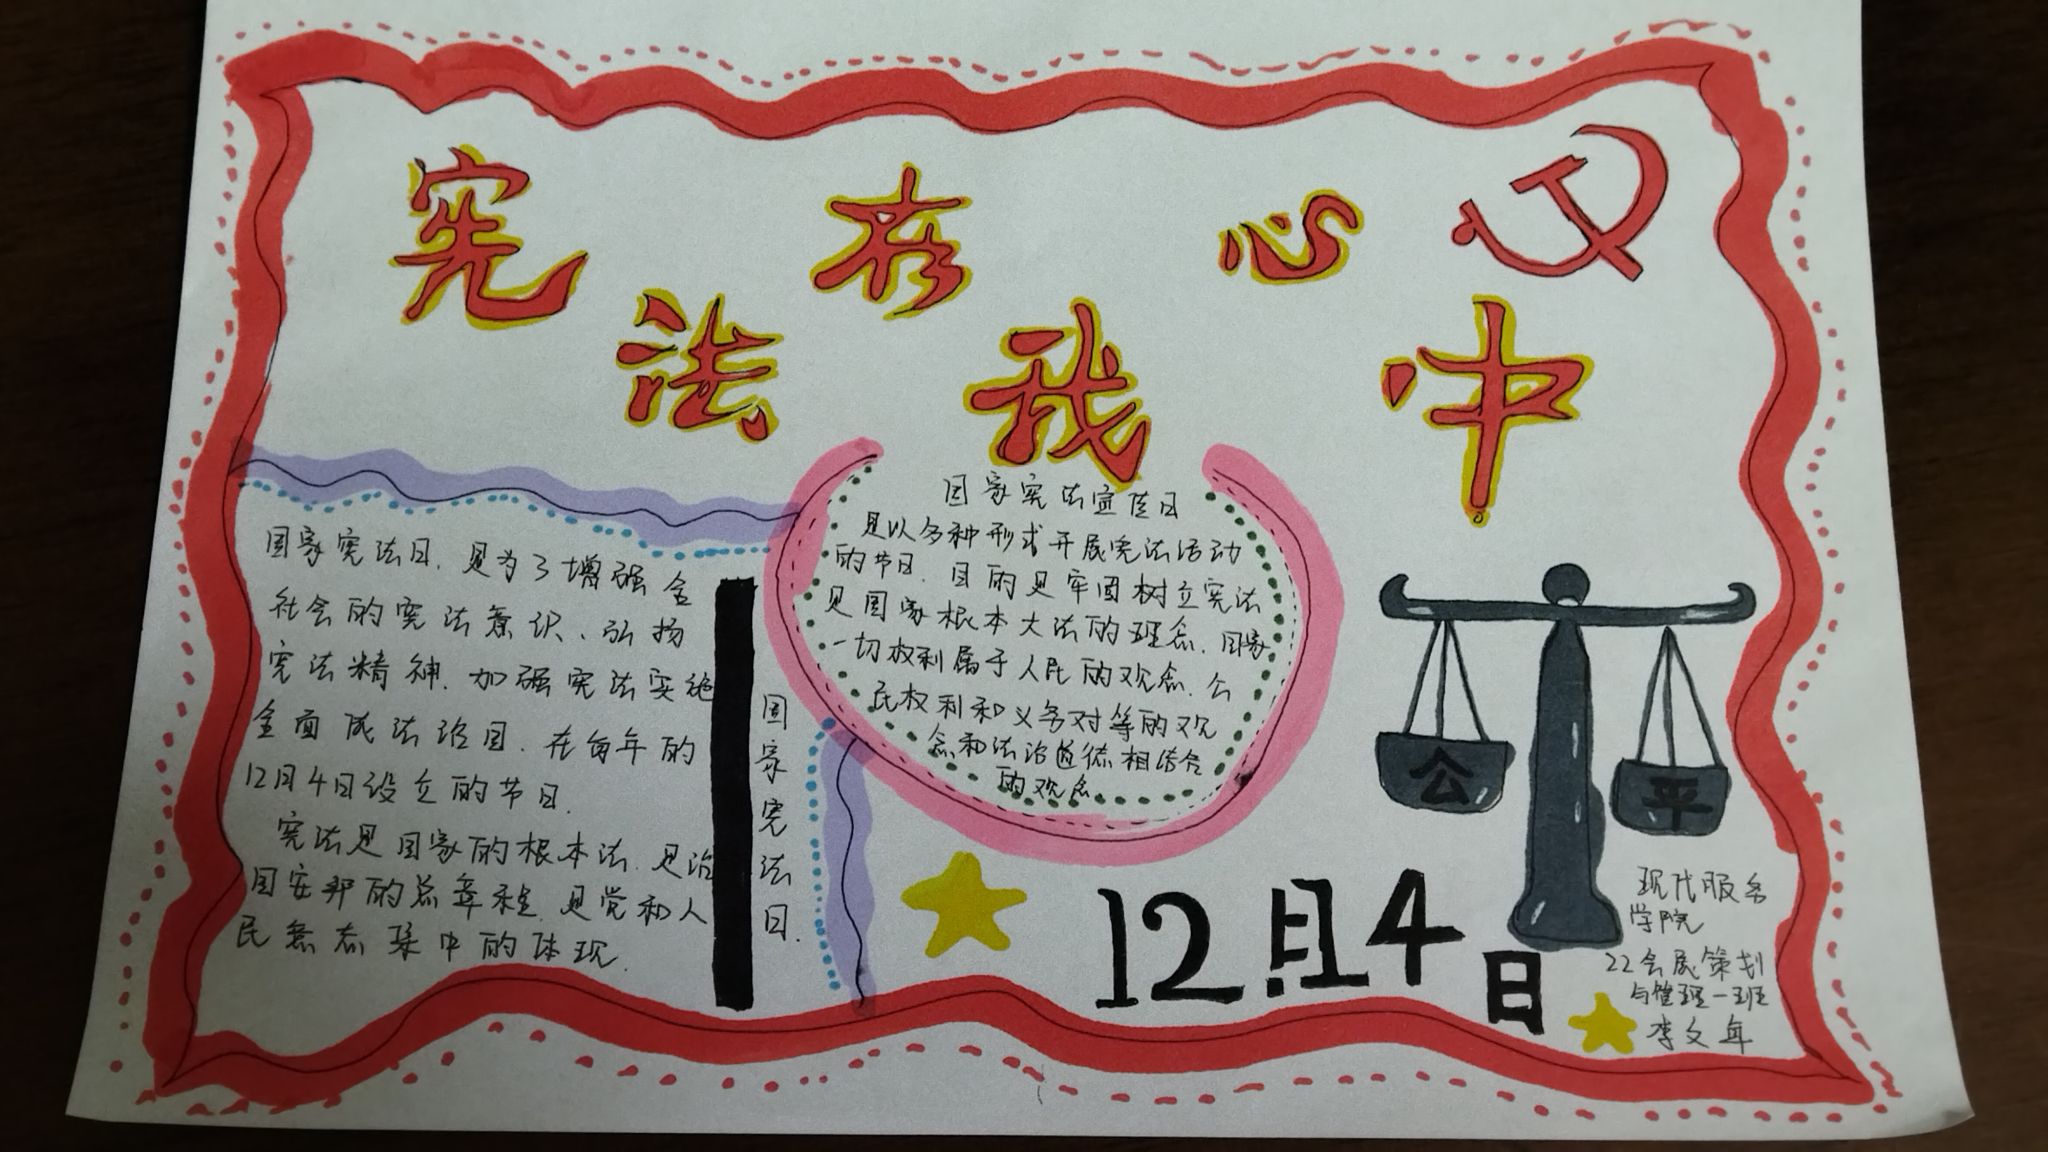 宪法在我心中
国家宪法日，是为了增强全
社会的宪法意识、弘扬
宪法精神、加强宪法实施
全面成法治国，在每年的
12月4日设立的节日.
宪法是国家的根本法，是治
国安邦的总章程，是党和人
民意志集中的体现.
国家宪法日.
国家宪法宣传日
是以多种形式开展宪法活动
的节日，目的是牢固树立宪法
是国家根本大法的理念，国家
一切权利属于人民的观念，公
民权利和义务对等的观
念和法治道德相结合
的观念.
公平
12月4日
现代服务
学院
22会展策划
与管理一班
李文年